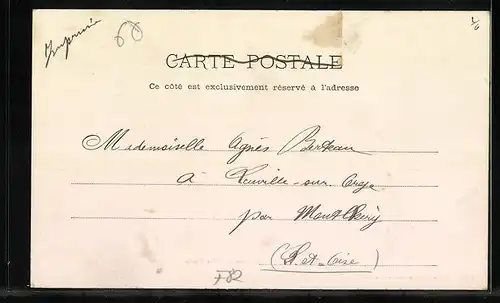 Imprimé
1/6
CARTE POSTALE
Ce côté est exclusivement réservé à l'adresse
Mademoiselle Agnès Berteau
à Leuville-sur-Orge
par Montlhéry
(S.-et-Oise)
F82